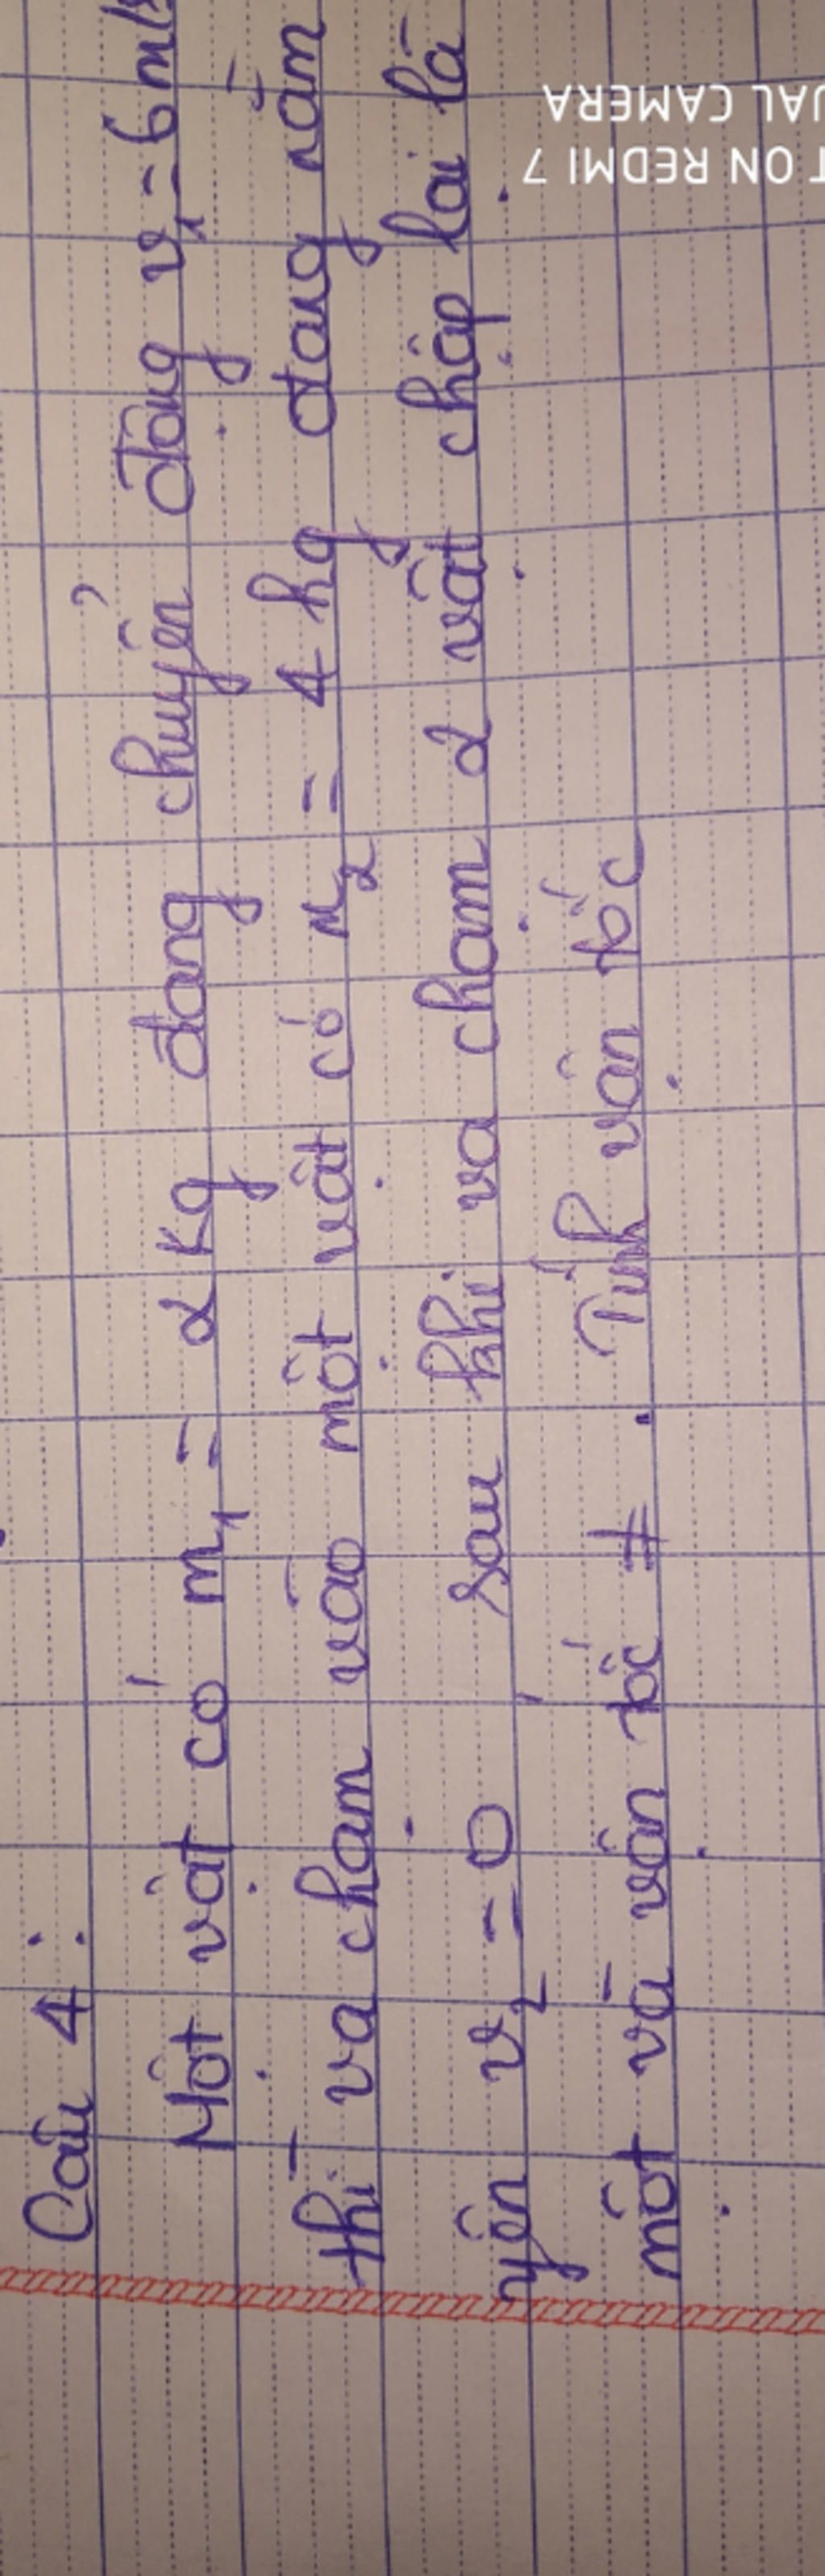 Câu 4:
Một vật có m₁ = 2 kg đang chuyển động v₁ = 6 m/s
thì va chạm vào một vật có m₂ = 4 kg đang nằm
yên v₂ = 0 sau khi va chạm 2 vật chập lại là
một và vận tốc #. Tính vận tốc
T ON REDMI 7
UAL CAMERA